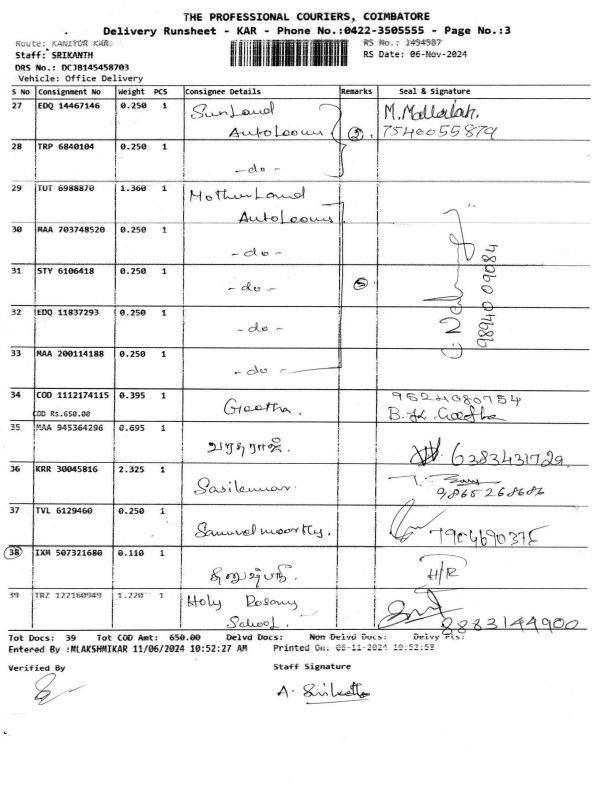 THE PROFESSIONAL COURIERS, COIMBATORE
Delivery Runsheet - KAR - Phone No.:0422-3505555 - Page No.:3
Route: KANIYUR KAR
RS No.: 1454587
Staff: SRIKANTH
RS Date: 06-Nov-2024
DRS No.: DCJB145458703
Vehicle: Office Delivery
S No Consignment No Weight PCS Consignee Details Remarks Seal & Signature
27 EDQ 14467146 0.250 1 SunLand M.
AutoLooms 2. 7540055879
28 TRP 6840104 0.250 1
-do-
29 TUT 6988870 1.360 1 MotherLand
AutoLooms
30 MAA 703748520 0.250 1
-do-
31 STY 6106418 0.250 1
-do- 5
98940 09084
32 EDQ 11837293 0.250 1
-do-
33 MAA 200114188 0.250 1
-do-
34 COD 1112174115 0.395 1 Geetha.
COD Rs.650.00 B.
35 MAA 945364296 0.695 1
வரதராஜ். 6383431729.
36 KRR 30045816 2.325 1
Sasikumar. 9865268686
37 TVL 6129460 0.250 1
Samuvelmoorthy.
38 IXM 507321680 0.110 1
H/R
39 TRZ 122160949 1.220 1 Holy Rosary
School. 8883144900
Tot Docs: 39 Tot COD Amt: 650.00 Delvd Docs: Non Delvd Docs: Delvy Pts:
Entered By :MLAKSHMIKAR 11/06/2024 10:52:27 AM Printed On: 06-11-2024 10:52:58
Verified By Staff Signature
A.